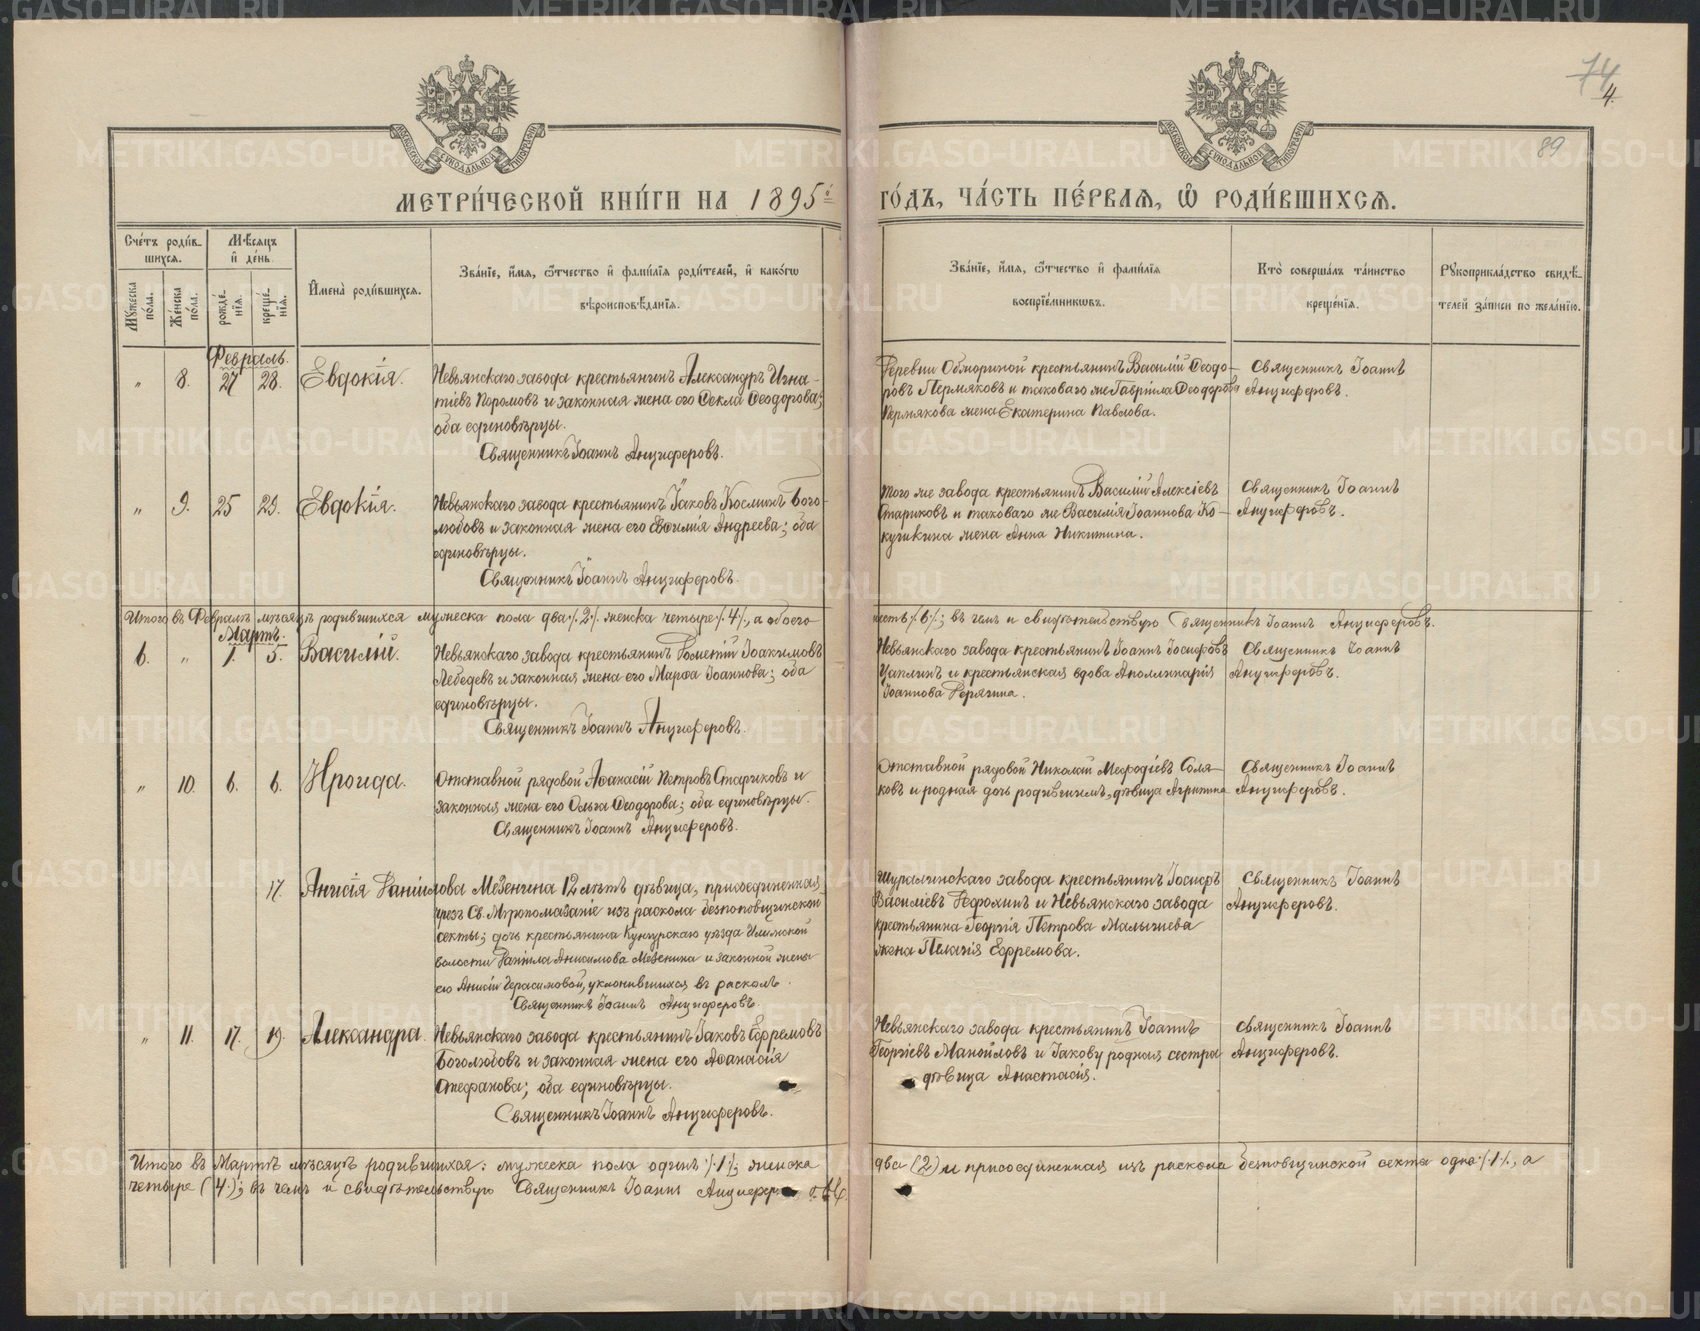 74
4.
89
МЕТРИ́ЧЕСКОЙ КНИ́ГИ НА 1895й ГО́ДЪ, ЧА́СТЬ ПЕ́РВАЯ, Ѽ РОДИ́ВШИХСЯ.
Сче́тъ роди́в-
шихся.
Мѣсяцъ
и де́нь
Му́жеска по́ла.
Же́нска по́ла.
рожде́нїя.
креще́нїя.
И҆мена̀ роди́вшихся.
Зва́нїе, и҆́мя, ѻ҆́тчество и҆ фами́лїя роди́телей, и҆ како́гѡ
вѣроисповѣ́данїя.
Зва́нїе, и҆́мя, ѻ҆́тчество и҆ фами́лїя
воспрїе́мникѡвъ.
Кто̀ соверша́лъ та́инство
креще́нїя.
Рꙋкоприкла́дство свидѣ́-
телей за́писи по жела́нїю.
Февраль.
" 8. 27 28. Евдокія.
Невьянскаго завода крестьянинъ Александръ Игна-
тіевъ Поромовъ и законная жена его Ѳекла Ѳеодорова;
оба единовѣрцы.
Священникъ Іоаннъ Анциферовъ.
Деревни Обжориной крестьянинъ Василій Ѳеодо-
ровъ Пермяковъ и таковаго же Гавріила Ѳеодорова
Пермякова жена Екатерина Павлова.
Священникъ Іоаннъ
Анциферовъ.
" 9. 25 29. Евдокія.
Невьянскаго завода крестьянинъ Іаковъ Косминъ Бого-
любовъ и законная жена его Евфимія Андреева; оба
единовѣрцы.
Священникъ Іоаннъ Анциферовъ.
того же завода крестьянинъ Василій Алексіевъ
Стариковъ и таковаго же Василія Іоаннова Ко-
кушкина жена Анна Никитина.
Священникъ Іоаннъ
Анциферовъ.
Итого въ Февралѣ мѣсяцѣ родившихся мужеска пола два ·/.2·/. женска четыре ·/.4·/., а обоего шесть ·/.6·/.; въ чемъ и свидѣтельствую Священникъ Іоаннъ Анциферовъ.
Мартъ.
6. " 1. 5. Василій.
Невьянскаго завода крестьянинъ Іоакимовъ
Лебедевъ и законная жена его Марфа Іоаннова; оба
единовѣрцы.
Священникъ Іоаннъ Анциферовъ.
Невьянскаго завода крестьянинъ Іоаннъ Іосифовъ
Цаплинъ и крестьянская вдова Аполлинарія
Іоаннова Дерягина.
Священникъ Іоаннъ
Анциферовъ.
" 10. 6. 6. Ироида.
Отставной рядовой Аѳанасій Петровъ Стариковъ и
законная жена его Ольга Ѳеодорова; оба единовѣрцы.
Священникъ Іоаннъ Анциферовъ.
Отставной рядовой Николай Меѳодіевъ Соля-
ковъ и родная дочь родившимъ, дѣвица Агрипина
Священникъ Іоаннъ
Анциферовъ.
17. Анисія Даніилова Мезенина 12 лѣтъ дѣвица, присоединенная
чрезъ Св. Мѵропомазаніе изъ раскола безпоповщинской
секты; дочь крестьянина Кунгурскаго уѣзда Илимской
волости Даніила Анисимова Мезенина и законной жены
его Анисіи Герасимовой, уклонившихся въ расколъ.
Священникъ Іоаннъ Анциферовъ.
Шуралинскаго завода крестьянинъ Іосифъ
Василіевъ Нефолинъ и Невьянскаго завода
крестьянина Георгія Петрова Малышева
жена Пелагія Ефремова.
Священникъ Іоаннъ
Анциферовъ.
" 11. 17. 19. Александра.
Невьянскаго завода крестьянинъ Іаковъ Ефремовъ
Боголюбовъ и законная жена его Аѳанасія
Стефанова; оба единовѣрцы.
Священникъ Іоаннъ Анциферовъ.
Невьянскаго завода крестьянинъ Іоаннъ
Георгіевъ Манойловъ и Іакову родная сестра
дѣвица Анастасія.
Священникъ Іоаннъ
Анциферовъ.
Итого въ Мартѣ мѣсяцѣ родившихся: мужеска пола одинъ ·/.1·/.; женска два (2) и присоединенная изъ раскола безповщинской секта одна ·/.1·/., а
четыре (4.); въ чемъ и свидѣтельствую Священникъ Іоаннъ
METRIKI.GASO-URAL.RU